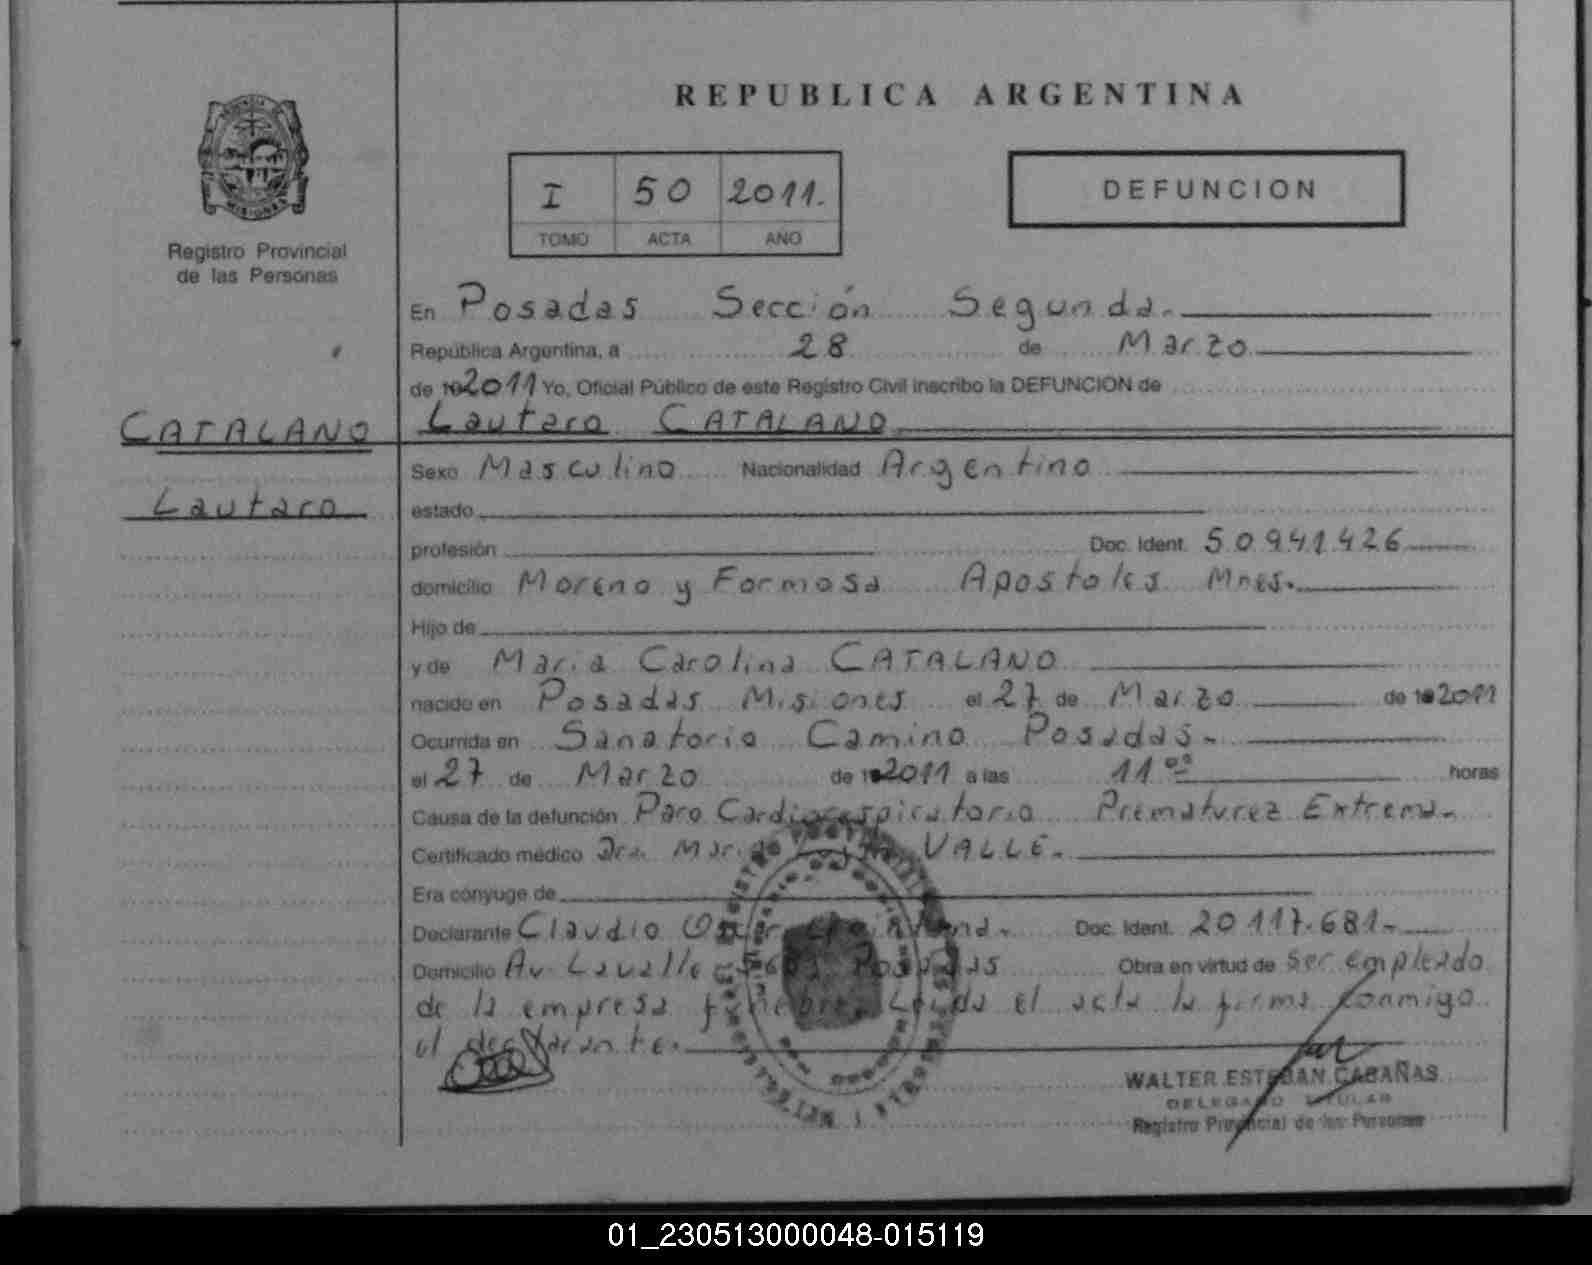 REPUBLICA ARGENTINA
MISIONES
Registro Provincial
de las Personas
I 50 2011.
TOMO ACTA AÑO
DEFUNCION
En Posadas Sección Segunda.
República Argentina, a 28 de Marzo
de 192011 Yo, Oficial Público de este Registro Civil inscribo la DEFUNCION de
CATALANO
Lautaro CATALANO
Lautaro
Sexo Masculino Nacionalidad Argentino
estado
profesión Doc. Ident. 50.941.426
domicilio Moreno y Formosa Apostoles Mnes.
Hijo de
y de Maria Carolina CATALANO
nacido en Posadas Misiones el 27 de Marzo de 192011
Ocurrida en Sanatorio Camino Posadas.
el 27 de Marzo de 192011 a las 11 00 horas
Causa de la defunción Paro Cardiorespiratorio Prematurez Extrema.
Certificado médico Dra. Maria VALLE.
Era cónyuge de
Declarante Claudio Doc. Ident. 20.117.681
Domicilio Av. Lavalle Posadas Obra en virtud de ser empleado
de la empresa funebre. Leida el acta la firma conmigo
el declarante.
WALTER ESTEBAN CABAÑAS
DELEGADO TITULAR
Registro Provincial de las Personas
01_230513000048-015119